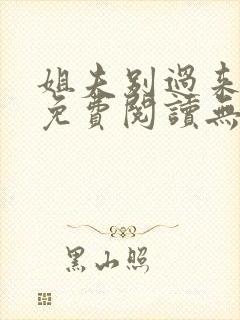 姐夫别過来
免費閱讀無
黑山照